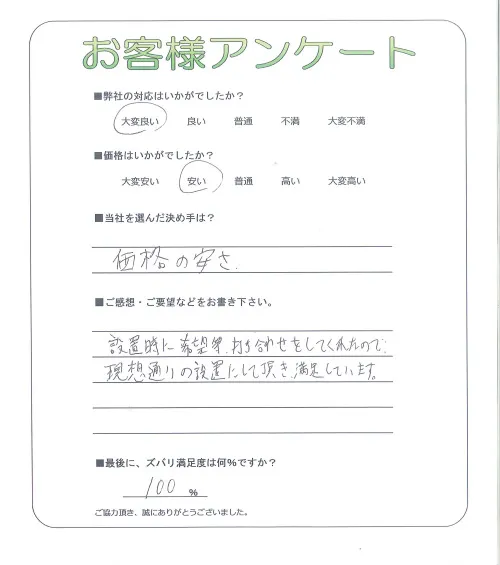 お客様アンケート
■弊社の対応はいかがでしたか？
大変良い 良い 普通 不満 大変不満
■価格はいかがでしたか？
大変安い 安い 普通 高い 大変高い
■当社を選んだ決め手は？
価格の安さ.
■ご感想・ご要望などをお書き下さい。
設置時に希望等、打ち合わせをしてくれたので、
現想通りの設置にして頂き、満足しています。
■最後に、ズバリ満足度は何％ですか？
100 ％
ご協力頂き、誠にありがとうございました。